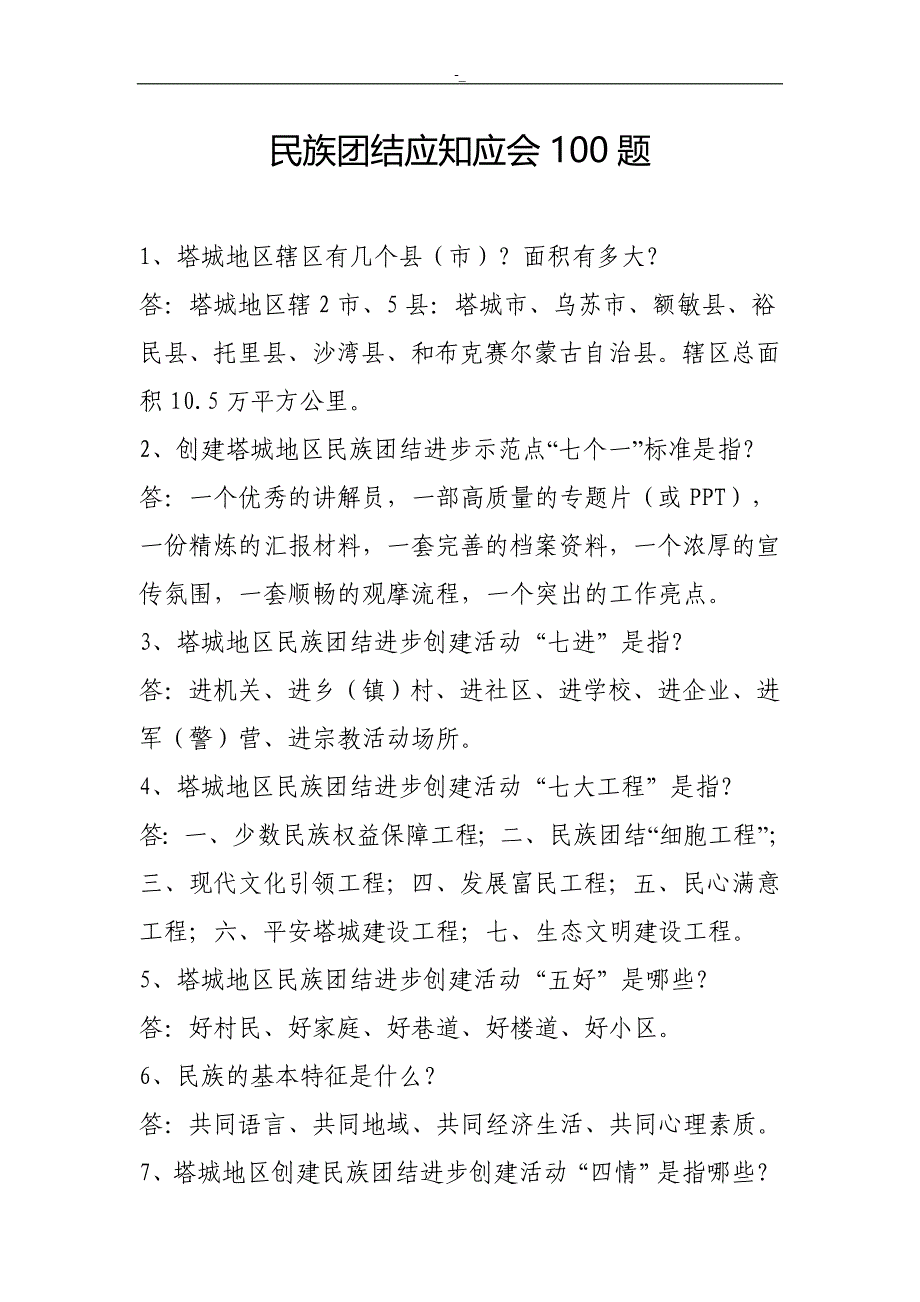 -_
民族团结应知应会 100 题
1、塔城地区辖区有几个县（市）？面积有多大？
答：塔城地区辖 2 市、5 县：塔城市、乌苏市、额敏县、裕
民县、托里县、沙湾县、和布克赛尔蒙古自治县。辖区总面
积 10.5 万平方公里。
2、创建塔城地区民族团结进步示范点“七个一”标准是指？
答：一个优秀的讲解员，一部高质量的专题片（或 PPT），
一份精炼的汇报材料，一套完善的档案资料，一个浓厚的宣
传氛围，一套顺畅的观摩流程，一个突出的工作亮点。
3、塔城地区民族团结进步创建活动“七进”是指？
答：进机关、进乡（镇）村、进社区、进学校、进企业、进
军（警）营、进宗教活动场所。
4、塔城地区民族团结进步创建活动“七大工程”是指？
答：一、少数民族权益保障工程；二、民族团结“细胞工程”；
三、现代文化引领工程；四、发展富民工程；五、民心满意
工程；六、平安塔城建设工程；七、生态文明建设工程。
5、塔城地区民族团结进步创建活动“五好”是哪些？
答：好村民、好家庭、好巷道、好楼道、好小区。
6、民族的基本特征是什么？
答：共同语言、共同地域、共同经济生活、共同心理素质。
7、塔城地区创建民族团结进步创建活动“四情”是指哪些？